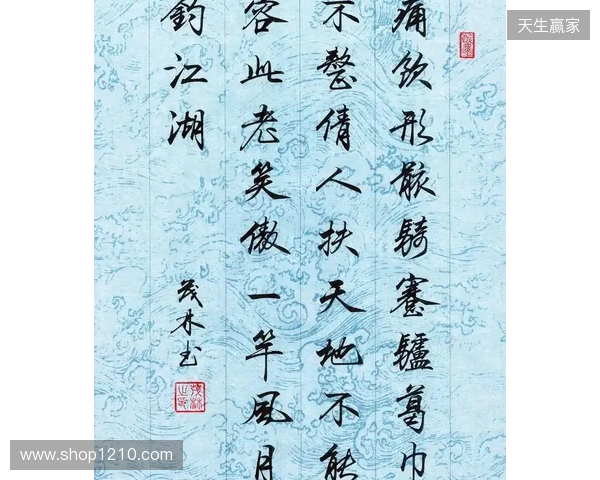 天生赢家
痛飲形骸騎蹇驢葛巾
不整倩人扶天地不能
容此老笑傲一竿風月
釣江湖
茂林书
www.shop1210.com